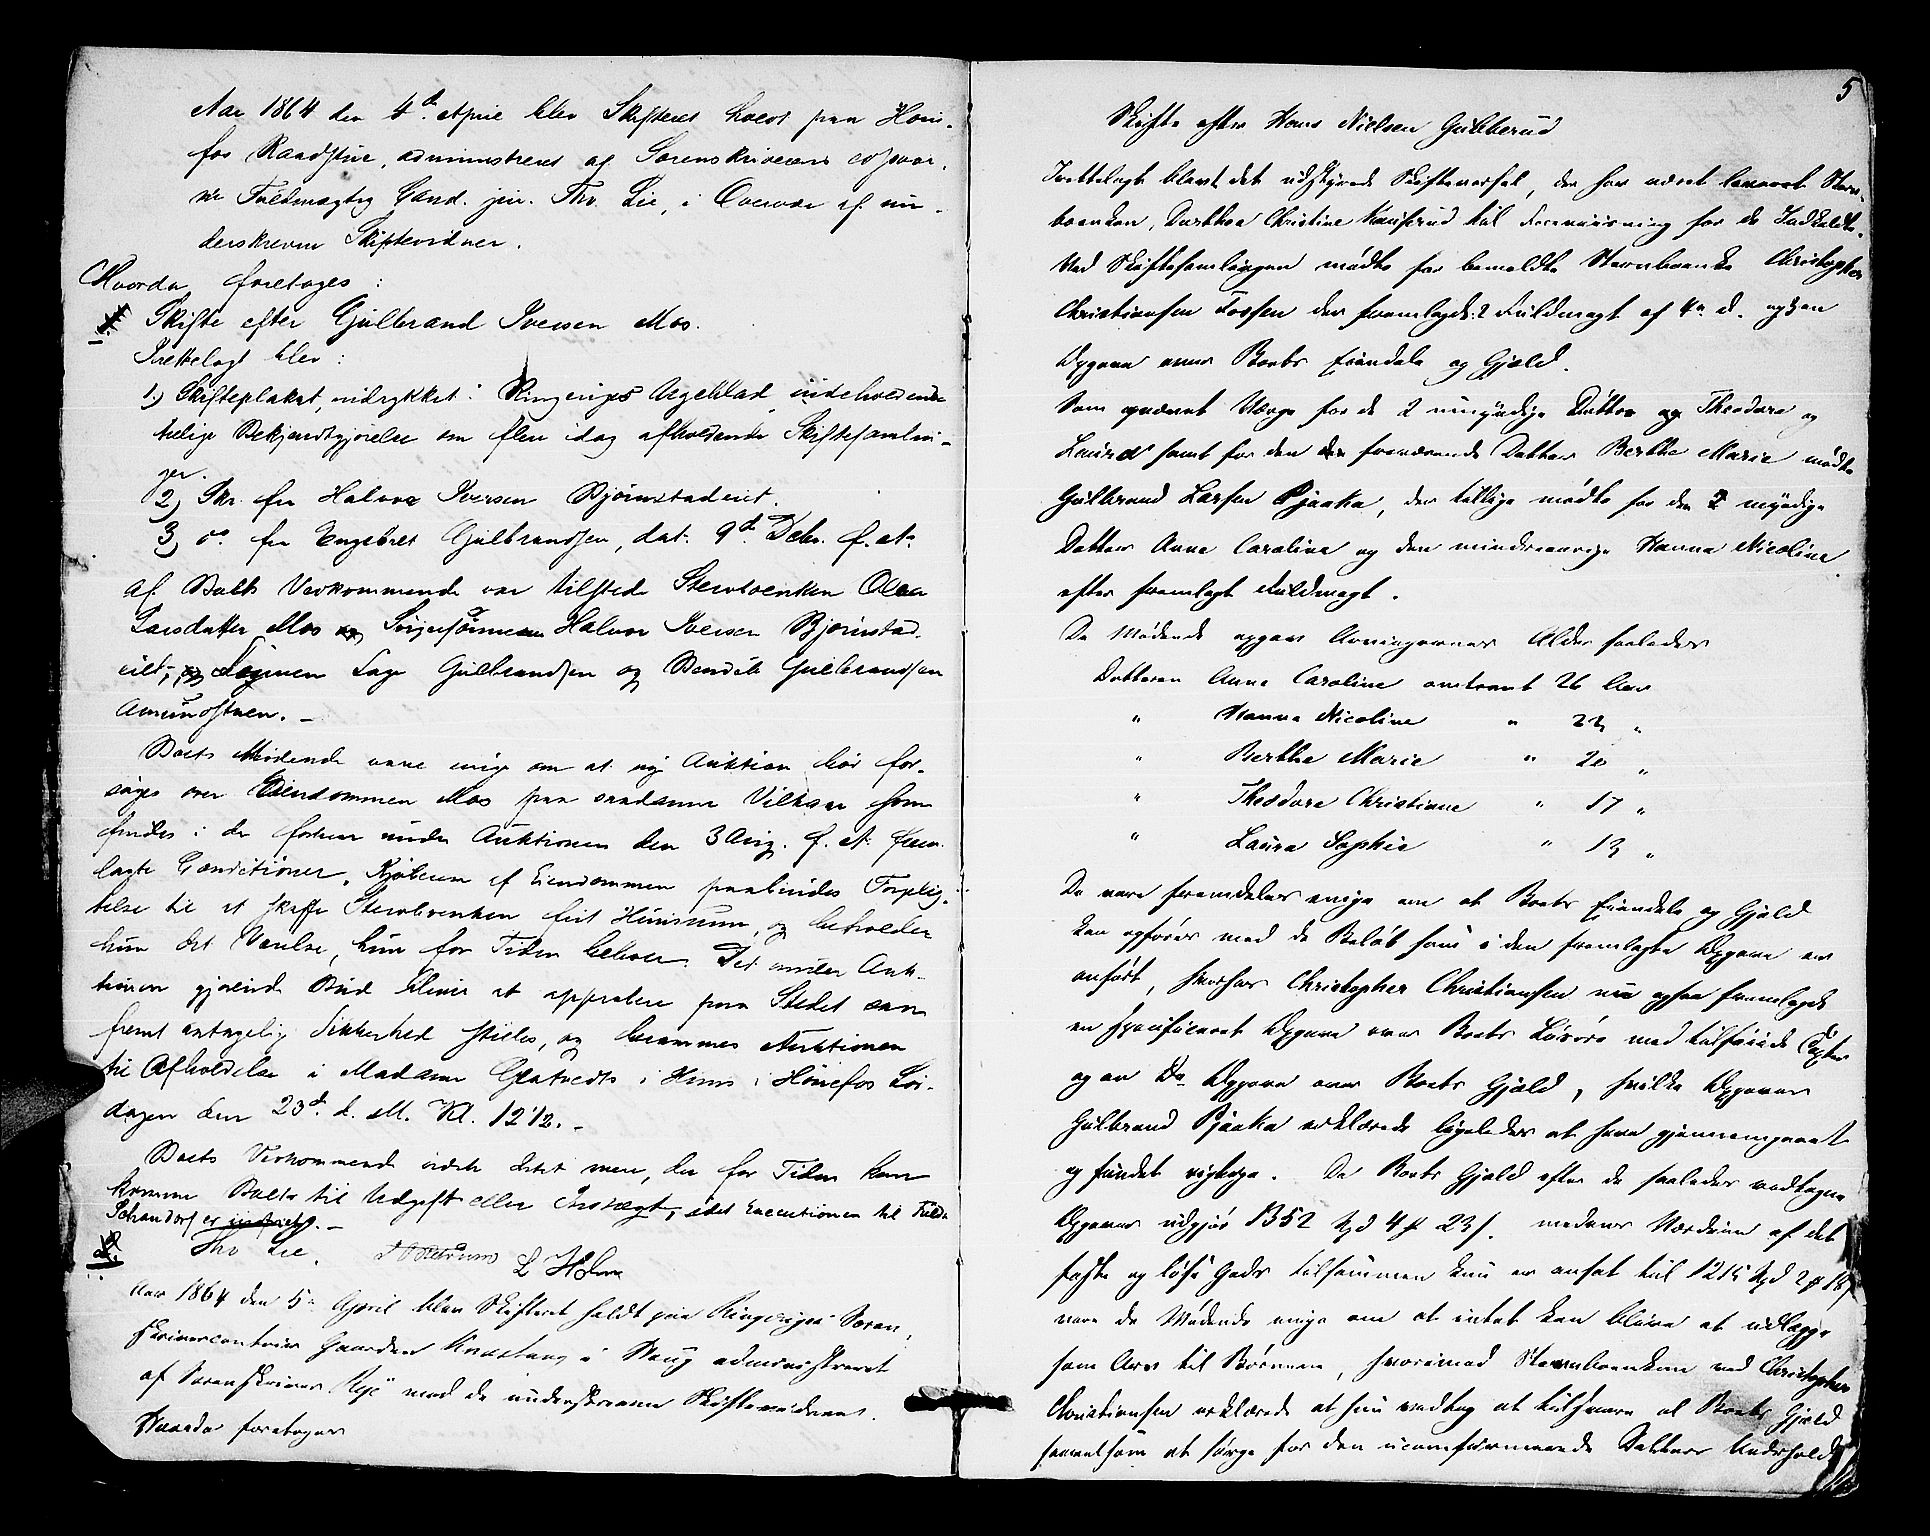 Aar 1864 den 4d April blev Skifteret holdt paa Höne-
fos Raadstue, administreret af Sorenskriverens edsvor-
ne Fuldmægtig Cand. jur. Thv. Lie, i Overvær af un-
derskrevne Skiftevidner.
Hvorda foretoges:
Skifte efter Gulbrand Iversen Mos.
Irettelagt blev:
1) Skifteplakat, indrykket i Ringeriges Ugeblad indeholdende
belige Bekjendtgjörelse om flere idag afholdende Skiftesamlin-
ger.
2) Skr. fra Halvor Iversen Bjørnstadeiet.
3) do fra Engebret Gulbrandsen, dat. 9d Debr. f. A.
af Boets Vedkommende var tilstede Stervboenken Olea
Larsdatter Mos og Halvor Iversen Bjørnstad-
eiet, og Sönnen Lage Gulbrandsen og Bendik Gulbrandsen
Amundstuen. –
Boets Mödende vare enige om at ny Auktion bör for-
söges over Eiendommen Mos paa saadanne Vilkaar som
findes i de forhen under Auktionen den 3 Aug. f. A. frem-
lagte Conditioner. Kjöberen af Eiendommen paabindes Forplig-
telse til at skaffe Stervboenken frit Huusrum, og beholder
hun det Værelse, hun for Tiden beboer. Det under Auk-
tionen gjorende Bud bliver at approbere paa Stedet saa-
fremt antagelig Sikkerhed stilles, og berammes Auktionen
til Afholdelse i Madame Glatvedts Huus i Hönefos Lör-
dagen den 23d d. M. Kl. 12½. –
Boets Vedkommende vidste intet mere, der for Tiden kan
komme Boet til Udgift eller Indtægt, idet Executionen til
Schandorf er –
Thv Lie. L Holm
Aar 1864 den 5te April blev Skifteret holdt paa Ringeriges Soren-
skrivercontoir Gaarden Knestang i Haug administreret
af Sorenskriver med de underskrevne Skiftevidner.
Hvorda foretoges
5
Skifte efter Hans Nielsen Gubberud
Irettelagt blev det udstyrede Skiftevarsel, der har været leveret Sterv-
boenken, Dorthea Christine til Foreviisning for de Indkaldte.
Ved Skiftesamlingen mödte for bemeldte Stervboenke Christopher
Christiansen Fossen der fremlagde Fuldmagt af 4de d. og en
Opgave over Boets Eiendele og Gjeld.
Som opnævnt Værge for de 2 umyndige Döttre Theodore og
Laura samt for den fraværende Datter Berthe Marie mödte
Gulbrand Larsen Pjaaka, der tillige mödte for den myndige
Datter Anne Caroline og den mindreaarige Hanna Nicoline
efter fremlagt Fuldmagt.
De Mödende opgav Arvingernes Alder saaledes
Datteren Anne Caroline omtrent 26 Aar
" Hanna Nicoline " 23 "
" Berthe Marie " 20 "
" Theodore Christiane " 17 "
" Laura Sophie " 13 "
De vare fremdeles enige om at Boets Eiendele og Gjeld
kan opföres med de Belöb som i den fremlagte Opgave er
anfört, hvorhos Christopher Christiansen nu ogsaa fremlagde
en specificeret Opgave over Boets Lösöre med tilföiede Taxter
og en Do Opgave over Boets Gjeld, hvilke Opgaver
Gulbrand Pjaaka erklærede ligeledes at have gjennemgaaet
og fundet rigtige. Da Boets Gjeld efter de saaledes vedtagne
Opgaver udgjör 1352 Spd 4 # 23 s. medens Værdien af det
faste og löse Gods tilsammen kun er ansat til 1215 Spd 2 # 18 s
vare de Mödende enige om at intet kan blive at udlægge
som Arv til Börnene, hvorimod Stervboenken ved Christopher
Christiansen erklærede at hun vedtog at tilsvare al Boets Gjeld
saavelsom at sörge for den uconfirmerede Datters Underhold